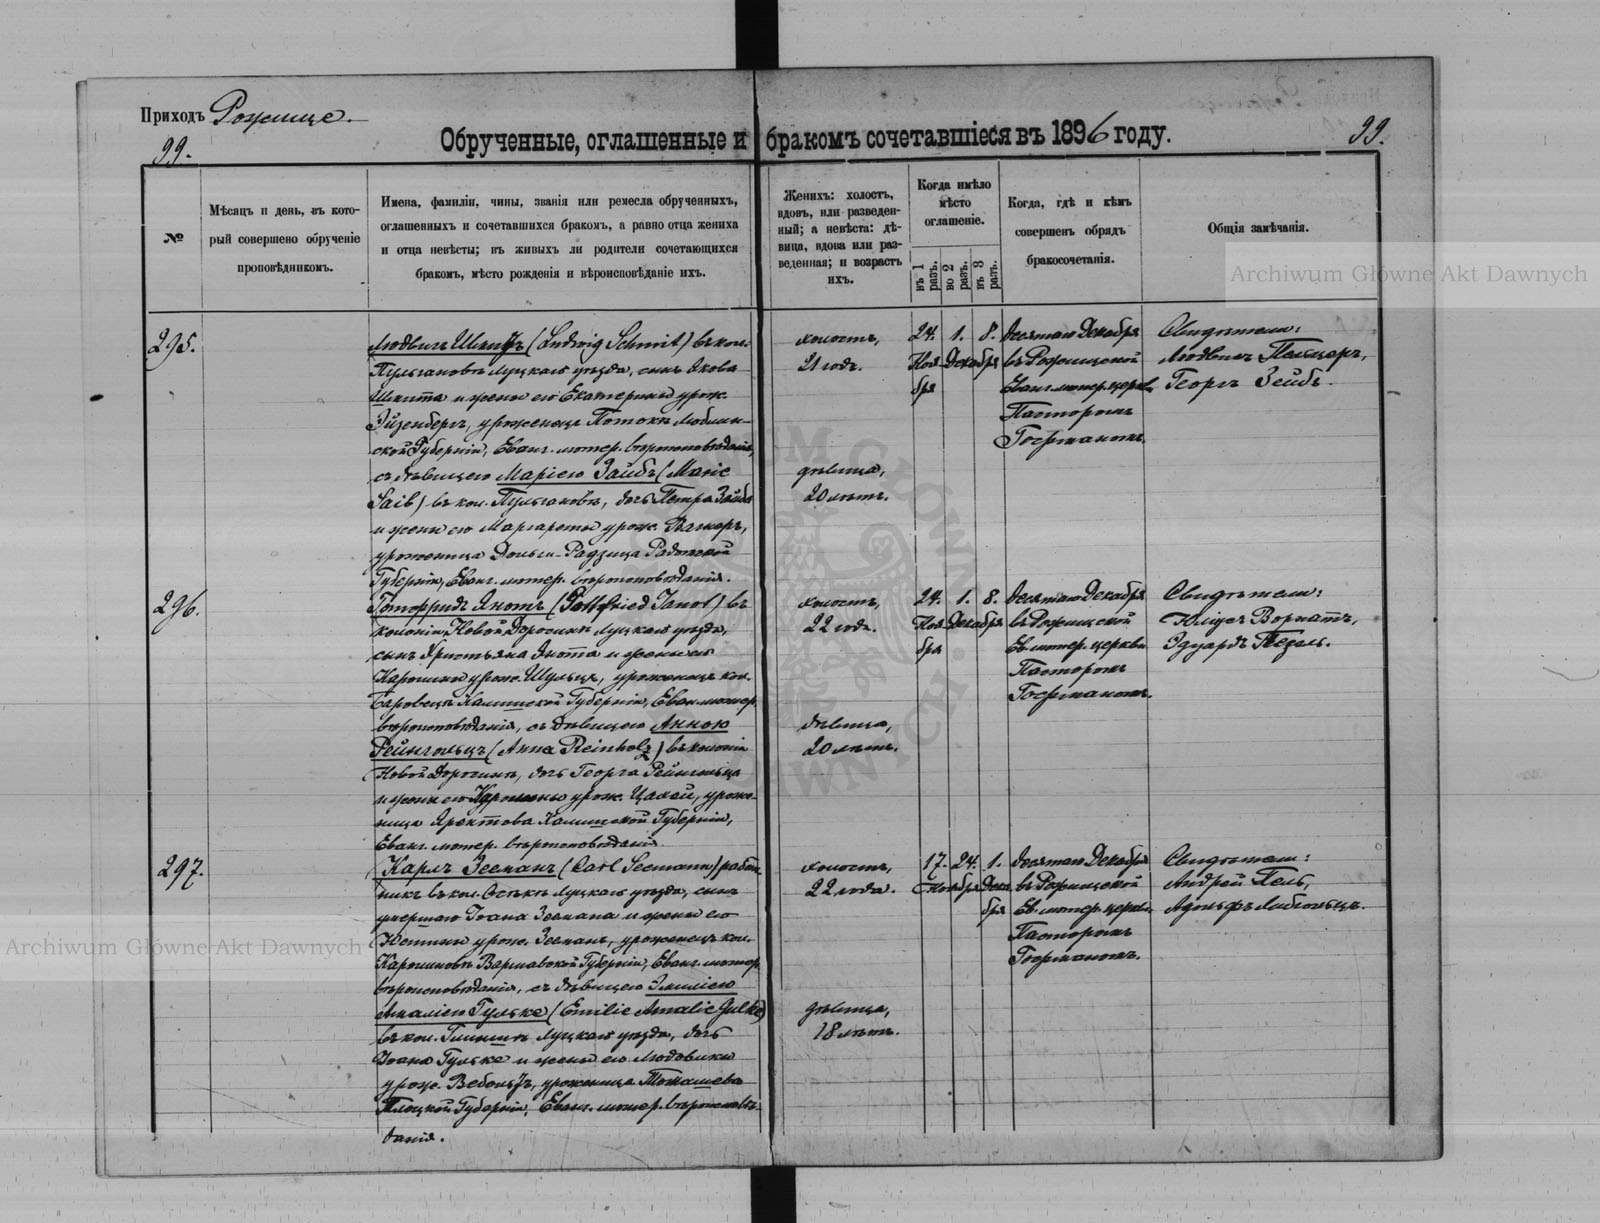 Приходъ Рожище.
99.
99.
Обрученные, оглашенные и бракомъ сочетавшіеся въ 1896 году.
№
Мѣсяцъ и день, въ кото-
рый совершено обрученіе
проповѣдникомъ.
Имена, фамиліи, чины, званія или ремесла обрученныхъ,
оглашенныхъ и сочетавшихся бракомъ, а равно отца жениха
и отца невѣсты; въ живыхъ ли родители сочетающихся
бракомъ, мѣсто рожденія и вѣроисповѣданіе ихъ.
Женихъ: холостъ,
вдовъ, или разведен-
ный; а невѣста: дѣ-
вица, вдова или раз-
веденная; и возрастъ
ихъ.
Когда имѣло
мѣсто
оглашеніе.
въ 1 разъ.
во 2 разъ.
въ 3 разъ.
Когда, гдѣ и кѣмъ
совершенъ обрядъ
бракосочетанія.
Общія замѣчанія.
Archiwum Główne Akt Dawnych
295.
Людвигъ Шмитъ (Ludwig Schmit) въ кол.
Пульгановъ Луцкаго уѣзда, сынъ Якова
Шмита и жены его Екатерины урож.
Эйзенбергъ, уроженецъ Потокъ Люблин-
ской Губерніи, Еванг. лютер. вѣроисповѣданія,
съ дѣвицею Маріею Зайбъ (Marie
Saib) въ кол. Пульгановъ, дочь Петра Зайба
и жены его Маргареты урож. Вагнеръ,
уроженица Радомской
Губерніи, Еванг. лютер. вѣроисповѣданія.
холостъ,
21 годъ.
дѣвица,
20 лѣтъ.
24. 1. 8.
Ноя- Декабря
бря
десятаго Декабря
въ Рожищской
Еванг. лютер. церкви
Пасторомъ
Госрманомъ.
Свидѣтели:
Людвигъ Пельцеръ,
Георгъ Зейбъ.
296.
Готфридъ Янотъ (Gottfried Janot) въ
колоніи Новой Доросинѣ Луцкаго уѣзда,
сынъ Христьяна Янота и жены его
Каролины урож. Шульцъ, уроженецъ кол.
Боровецъ Калишской Губерніи, Еван. лютер.
вѣроисповѣданія, съ дѣвицею Анною
Рейнгольцъ (Anna Reinholz) въ колоніи
Новой Доросинѣ, дочь Георга Рейнгольца
и жены его Каролины урож. Цахей, уроже-
ница Калишской Губерніи,
Еванг. лютер. вѣроисповѣданія.
холостъ,
22 года.
дѣвица,
20 лѣтъ.
24. 1. 8.
Ноя Декабря
бря
десятаго Декабря
въ Рожищской
Ев. лютер. церкви
Пасторомъ
Госрманомъ.
Свидѣтели:
Юліусъ Ворнатъ,
Эдуардъ Пецель.
297.
Карлъ Зееманъ (Carl Seemann) работ
никъ въ кол. Луцкаго уѣзда, сынъ
умершаго Іоана Земана и жены его
урож. Зееманъ, уроженецъ кол.
Каролиновъ Варшавской Губерніи, Еванг. лютер.
вѣроисповѣданія, съ дѣвицею Эмиліею
Амаліею Гульке (Emilie Amalie Gulke)
въ кол. Луцкаго уѣзда, дочь
Іоана Гульке и жены его Людовики
урож. уроженица Томашева
Плоцкой Губерніи, Еванг. лютер. вѣроисповѣ-
данія.
холостъ,
22 года.
дѣвица,
18 лѣтъ.
17. 24. 1.
Ноября Дека
бря
десятаго Декабря
въ Рожищской
Ев. лютер. церкви
Пасторомъ
Госрманомъ.
Свидѣтели:
Андрей Пель,
Адольфъ
Archiwum Główne Akt Dawnych